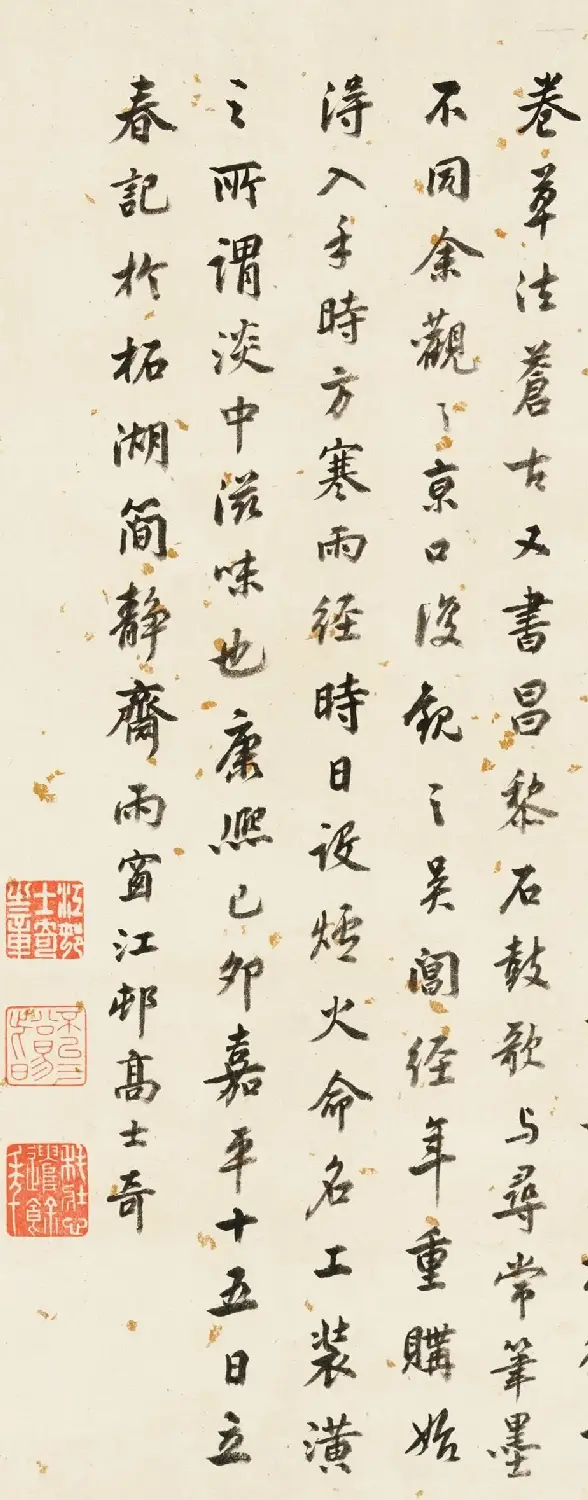 卷草法蒼古又書昌黎石鼓歌与尋常筆墨
不同余觀之京口後觀之吴閶经年重購始
得入手時方寒雨经時日设爐火命名工装潢
之所謂淡中滋味也康熙己卯嘉平十五日立
春記於柘湖简静齋雨窗江邨髙士奇